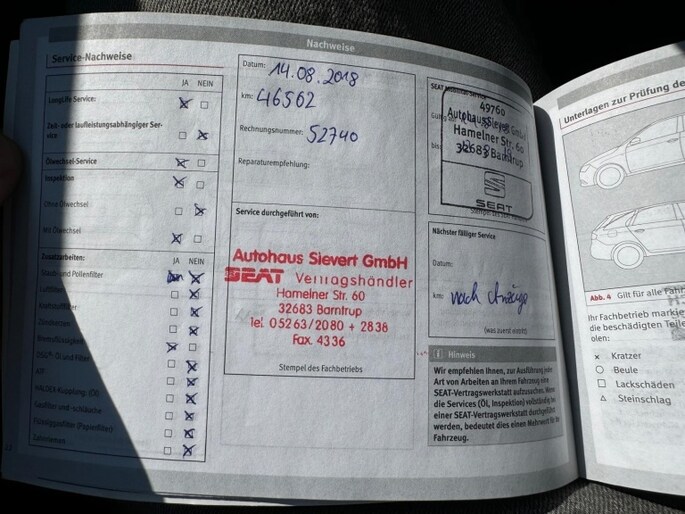 Nachweise
Service-Nachweise
JA NEIN
LongLife Service:
Zeit- oder laufleistungsabhängiger Ser-
vice
Ölwechsel-Service
Inspektion
Ohne Ölwechsel
Mit Ölwechsel
Zusatzarbeiten: JA NEIN
Staub- und Pollenfilter
Luftfilter
Kraftstofffilter
Zündkerzen
Bremsflüssigkeit
DSG®-Öl und Filter
ATF
HALDEX-Kupplung: (Öl)
Gasfilter und -schläuche
Flüssiggasfilter (Papierfilter)
Zahnriemen
Datum: 14.08.2018
km: 46562
Rechnungsnummer: 52740
Reparaturempfehlung:
Service durchgeführt von:
Autohaus Sievert GmbH
SEAT Vertragshändler
Hamelner Str. 60
32683 Barntrup
Tel. 05263/2080 + 2838
Fax. 4336
Stempel des Fachbetriebs
SEAT Mobilität-Service
49760
Autohaus Sievert GmbH
Hamelner Str. 60
32683 Barntrup
bis
SEAT
Stempel des
Nächster fälliger Service
Datum:
km: nach Anzeige
(was zuerst eintritt)
Hinweis
Wir empfehlen Ihnen, zur Ausführung jeder
Art von Arbeiten an Ihrem Fahrzeug eine
SEAT-Vertragswerkstatt aufzusuchen. Wenn
die Services (Öl, Inspektion) vollständig bei
einer SEAT-Vertragswerkstatt durchgeführt
werden, bedeutet dies einen Mehrwert für Ihr
Fahrzeug.
Unterlagen zur Prüfung de
Abb. 4 Gilt für alle Fahr
Ihr Fachbetrieb markie
die beschädigten Teile
olen:
× Kratzer
○ Beule
□ Lackschäden
△ Steinschlag